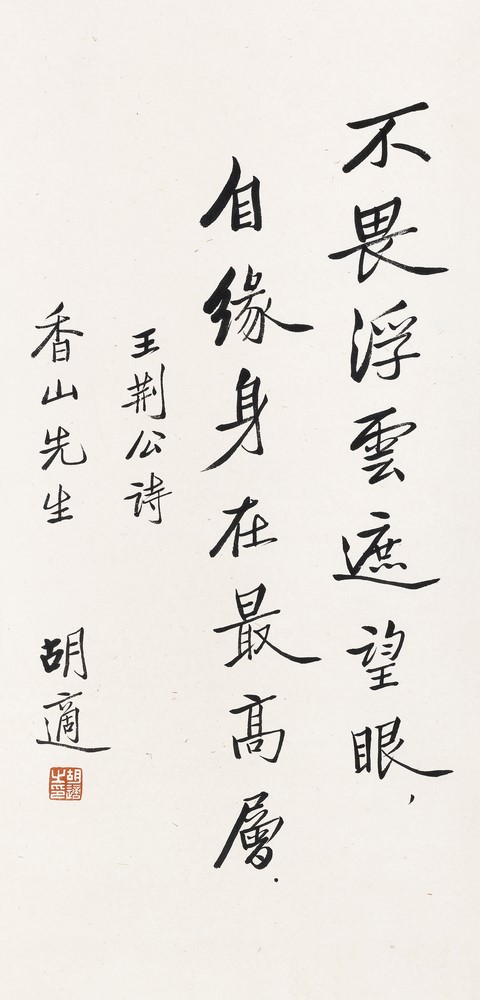 不畏浮雲遮望眼，
自緣身在最高層．
王荆公詩
香山先生 胡適
胡適之印